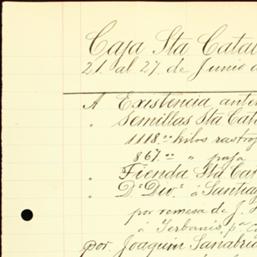 Caja Sta Catal
21 al 27 de Junio d
A Existencia ante
" Semillas Sta Cat
1118.00 kilos rastroj
867.00 " paja
" Tienda Sta Ca
" D. Div. á Santiag
por remesa de J.
á
por Joaquin Sanabria